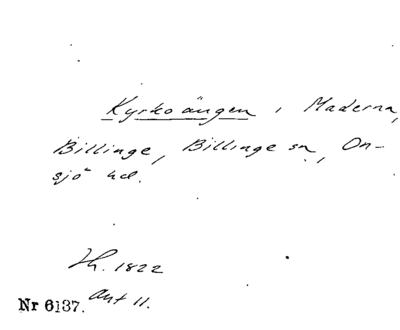 Kyrkoängen i Maderna,
Billinge, Billinge sn, On-
sjö hd.
Hh. 1822
Akt 11.
Nr 6137.